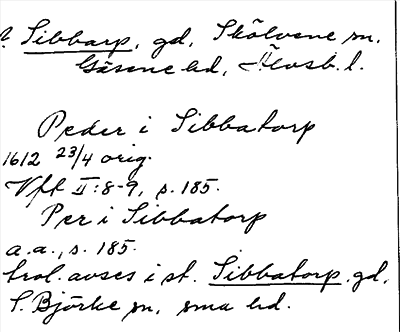 ? Sibbarp, gd, Skölvene sn,
Gäsene hd, Älvsb. l.
Peder i Sibbatorp
1612 23/4 orig.
Vft II:8-9, s. 185.
Per i Sibbatorp
a.a., s. 185.
trol. avses i st. Sibbatorp, gd,
S. Björke sn, sma hd.